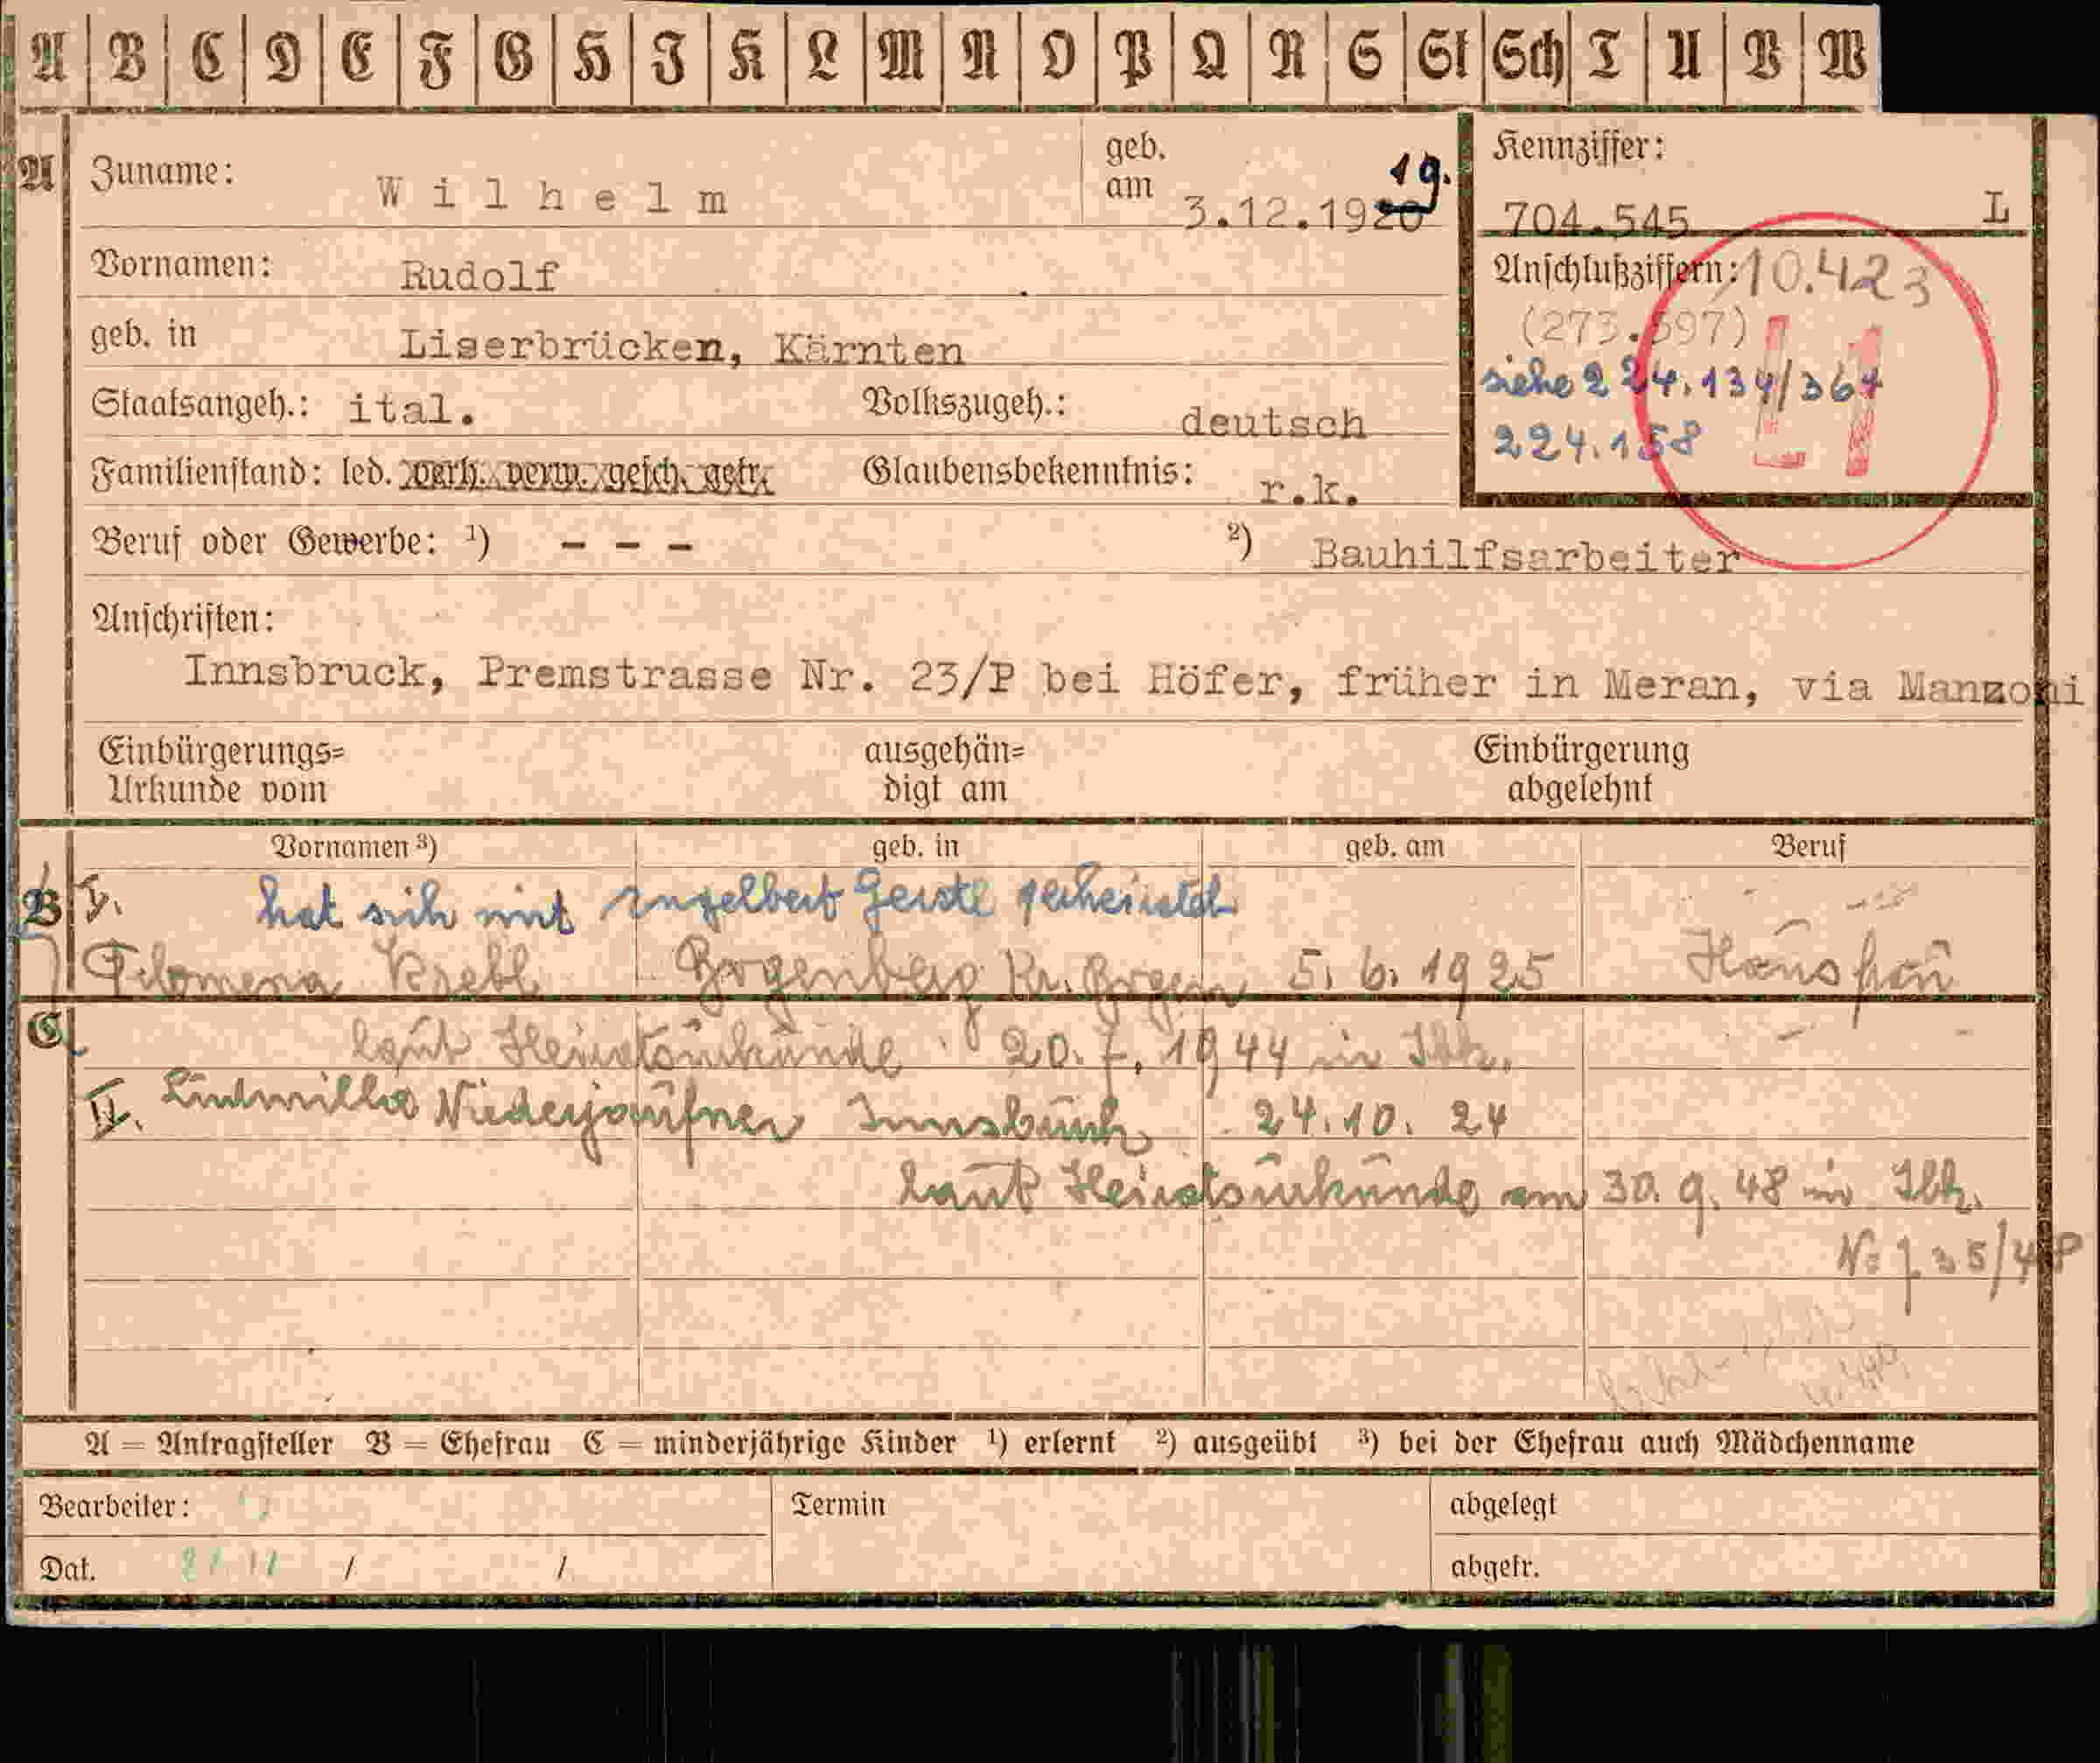 A B C D E F G H J K L M N O P Q R S St Sch T U V W
A Zuname: Wilhelm geb. am 3.12.1920 19.
Kennziffer: 704.545 L
Vornamen: Rudolf
Anschlußziffern: 10.423
(273.597)
geb. in Liserbrücken, Kärnten
siehe 224.134/364
Staatsangeh.: ital. Volkszugeh.: deutsch
224.158
L1
Familienstand: led. verh. verw. gesch. getr. Glaubensbekenntnis: r.k.
Beruf oder Gewerbe: ¹) - - - ²) Bauhilfsarbeiter
Anschriften:
Innsbruck, Premstrasse Nr. 23/P bei Höfer, früher in Meran, via Manzoni
Einbürgerungs=
Urkunde vom
ausgehän=
digt am
Einbürgerung
abgelehnt
Vornamen ³) geb. in geb. am Beruf
B I. hat sich mit Engelbert Gerstl verheiratet
Filomena Krebl Bogenberg Kr. Bogen 5. 6. 1925 Hausfrau
C laut Heiratsurkunde 20. 7. 1944 in Ibk.
II. Ludmilla Niederjaufner Innsbruck 24.10. 24
laut Heiratsurkunde am 30. 9. 48 in Ibk.
A = Antragsteller B = Ehefrau C = minderjährige Kinder ¹) erlernt ²) ausgeübt ³) bei der Ehefrau auch Mädchenname
Bearbeiter: Termin abgelegt
Dat. / / abgetr.